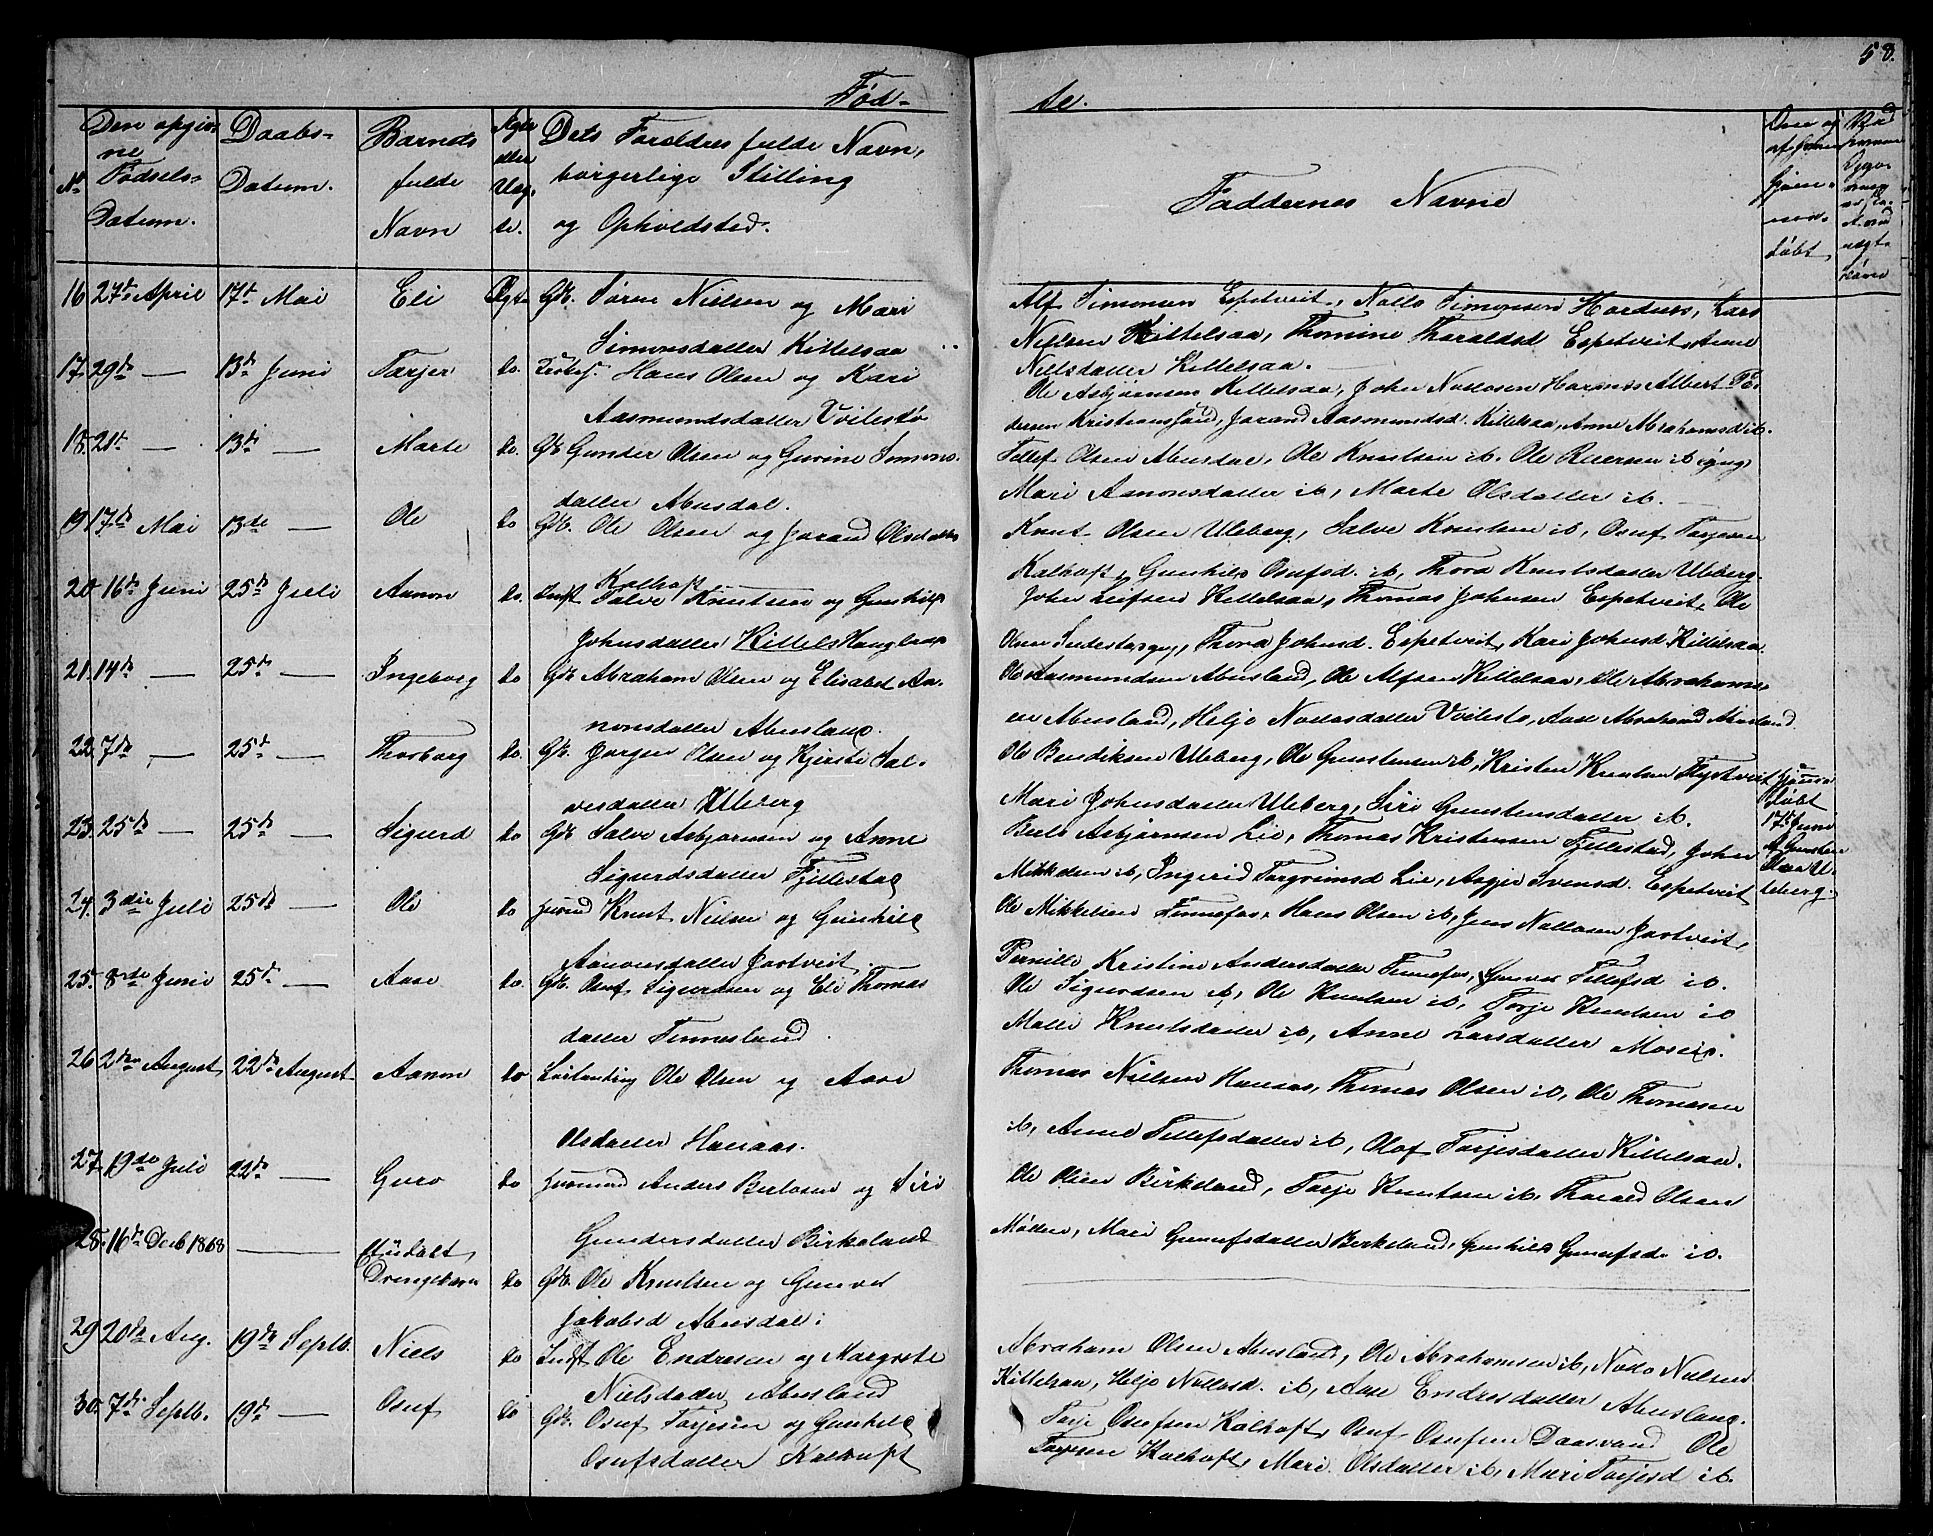 58.
Fød-
te.
No
Den opgiv-
ne
Fødsels-
Datum.
Daabs-
Datum.
Barnets
fulde
Navn
Ægte
eller
Uæg-
te.
Dets Forældres fulde Navn,
borgerlige Stilling
og Opholdsted.
Faddernes Navne
løbt
16 27de April 17de Mai Eli Ægte Gdb. Søren Nielsen og Mari
Simonsdatter Kittelsaa
Alf Simonsen Espetveit, Nollo Simonsen Hordnes, Kari
Nielsen Kittelsaa, Thomine Tharaldsd Espetveit, Anne
Nielsdatter Kittelsaa.
17 29de — 13de Juni Tarjer do. Hans Olsen og Kari
Aasmundsdatter Voilestø
Ole Asbjørnsen Kittelsaa, John Nollosen Hornes Albert
Kristianssand, Jorand Aasmundsd. Kittelsaa, Anne Abrahamsd ib.
18. 21de — 13de — Marte do. Gdb Gunder Olsen og Gurine Simons-
datter Abusdal.
Tellef Olsen Abusdal, Ole Knutsen ib. Ole Reersen ib
Mari Aanonsdatter ib, Marte Olsdatter ib.
19 17de Mai 13de — Ole do Gdb. Ole Olsen og Jorand Olsdatter
Kalhoft
Knut Olsen Uleberg, Salve Knutsen ib, Osuf Tarjesen
Kalhoft, Gunhild Osufsd. ib, Thora Knutsdatter Uleberg.
20 16de Juni 25de Juli Aanon do. Indst Salve Knutsen og Gunhild
Johnsdatter Kittels Haugland
John Leifsen Kittelsaa, Thomas Johnsen Espetveit, Ole
Olsen Thora Johnsd. Espetveit, Kari Johnsd Kittelsaa
21. 14de — 25de — Ingeborg do Gdb Abraham Olsen og Elisabet Aa-
nonsdatter Abusland.
Ole Aasmundsen Abusland, Ole Alfsen Kittelsaa, Ole Abrahams-
en Abusland, Helje Nollosdatter Voilestø, Aase Abrahamsd Abusland
22. 7de — 25de — Thorborg do. Gdb. Jørgen Olsen og Kjersti Sal-
vesdatter Uleberg
Ole Bendiksen Uleberg, Ole Gunstensen ib, Kristen Knutsen Flystveit
Mari Johnsdatter Uleberg, Siri Gunstensdatter ib.
løbt
17de Juni
Olsen U-
leberg.
23. 25de — 25de — Sigurd do Gdb Salve Asbjørnsen og Anne
Sigurdsdatter Fjellestad
Berte Asbjørnsen Lie, Thomas Kristensen Fjellestad, John
Mikkelsen ib, Ingerid Torgrimsd Lie, Aagje Svensd. Espetveit
24. 3die Juli 25de — Ole do Knut Nielsen og Gunhild
Aanonsdatter Jortveit
Ole Mikkelsen Finnefos, Hans Olsen ib, Jens Nollosen Jortveit,
Pernille Kristine Andersdatter Finnefos, Gunvor Tellefsd ib.
25. 8de Juni 25de — Aase do. Gdb. Osuf Sigurdsen og Eli Thomas
datter Finnesland.
Ole Sigurdsen ib, Ole Knutsen ib, Torje Knutsen ib
Malli Knutsdatter ib, Anne Larsdatter Moseid.
26 2den August 22de August Aanon do Ole Olsen og Aase
Olsdatter Hanaas.
Thomas Nielsen Hanaas, Thomas Olsen ib, Ole Thomasen
ib, Anne Tellefsdatter ib, Olaf Torjesdatter Kittelsaa.
27 19de Juli 22de — Guro do Anders Berlosen og Siri
Gundersdatter Birkeland
Ole Olsen Birkeland, Torje Knutsen ib. Tharald Olsen
Møllen, Mari Gunufsdatter Birkeland, Gunhild Gunufsd. ib.
28. 16de Decb 1868 — Udøbt
Drengebarn do Gdb. Ole Knutsen og Gunvor
Jakobsd Abusdal
29 20de Aug. 19de Septb. Niels do Indst Ole Endresen og Margrete
Nielsdatter Abusland
Abraham Olsen Abusland, Ole Abrahamsen ib, Nollo Nielsen
Kittelsaa, Helje Nollosd. ib, Aase Endresdatter Abusland.
30. 7de Septb. 19de — Osuf do Gdb. Osuf Tarjesen og Gunhild
Osufsdatter Kalhoft
Tarje Osufsen Kalhoft, Osuf Osufsen Daasvand Ole
Tarjesen Kalhoft, Mari Olsdatter ib, Mari Tarjesd ib.